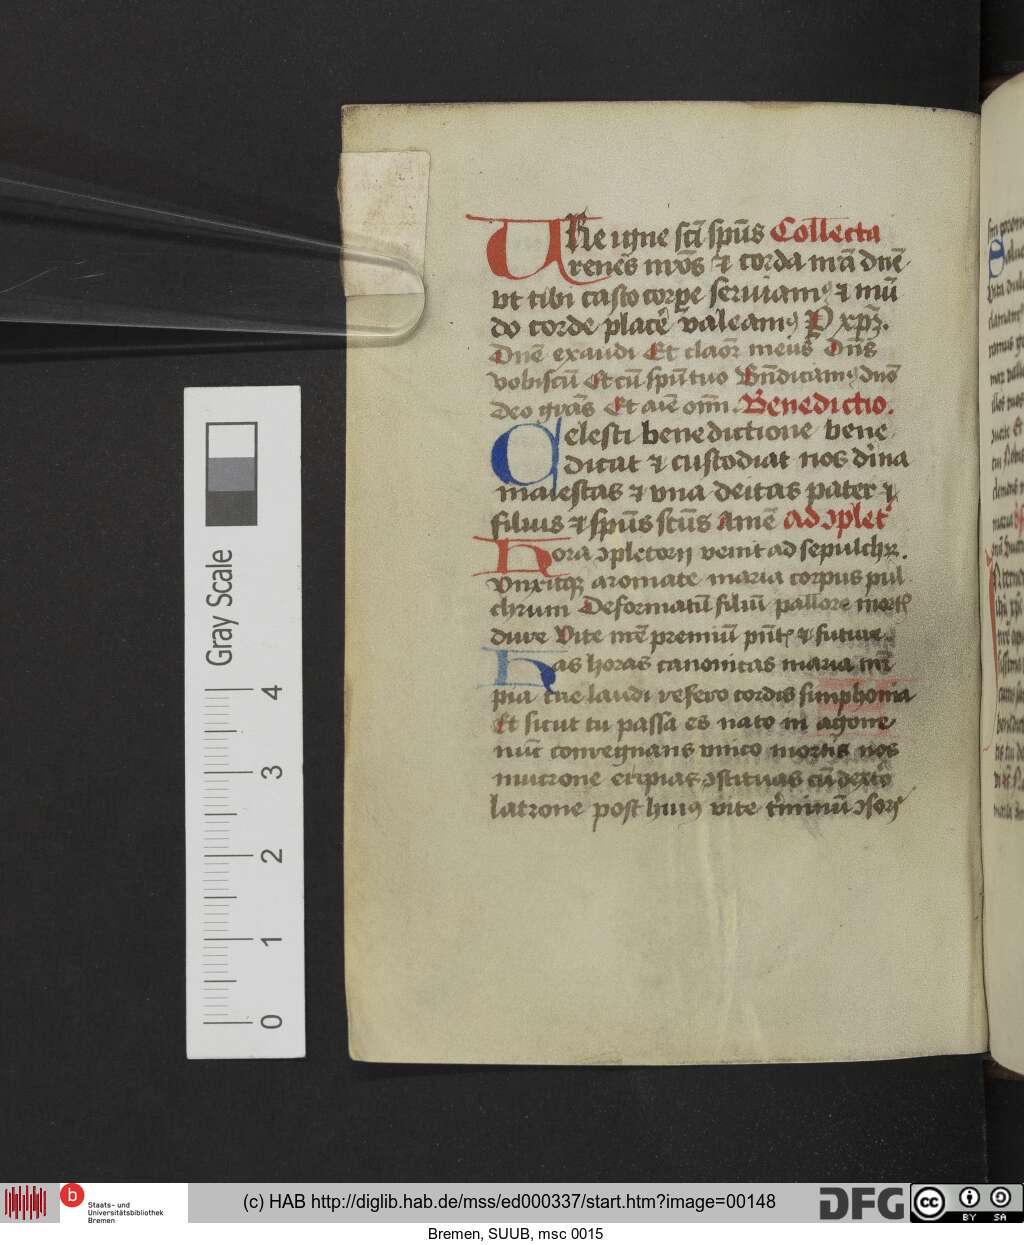 URe igne sc̄i sp̄us Collecta
renes nr̄os ⁊ corda nr̄a dn̄e
vt tibi casto corpe seruiamꝰ ⁊ mū
do corde placē valeamꝰ P xp̄ꝫ.
Dn̄e exaudi Et claor̄ meus Dn̄s
vobiscū Et cū sp̄u tuo Bn̄dicamꝰ dn̄o
Deo gr̄as Et aīe om̄i Benedictio.
Celesti benedictione bene
dicat ⁊ custodiat nos diīna
maiestas ⁊ vna deitas pater ⁊
filius ⁊ sp̄us sc̄us Amē ad ↄplet
Hora ↄpletorij venit ad sepulchꝝ.
Vnxitqꝫ aromate maria corpus pul
chrum Deformatū filiū pallore mort
dure Vite mē premiū pn̄t ⁊ future
Has horas canonicas maria mr̄
pia tue laudi resero cordis simphonia
Et sicut tu passa es nato in agone
nūc conregnans vnico mortis nos
mucrone eripias ↄstituas cū dextro
latrone post huiꝰ vite t̄minū ↄsors
Gray Scale
4
3
2
1
0
b Staats- und
Universitätsbibliothek
Bremen
(c) HAB http://diglib.hab.de/mss/ed000337/start.htm?image=00148
DFG
cc BY SA
Bremen, SUUB, msc 0015